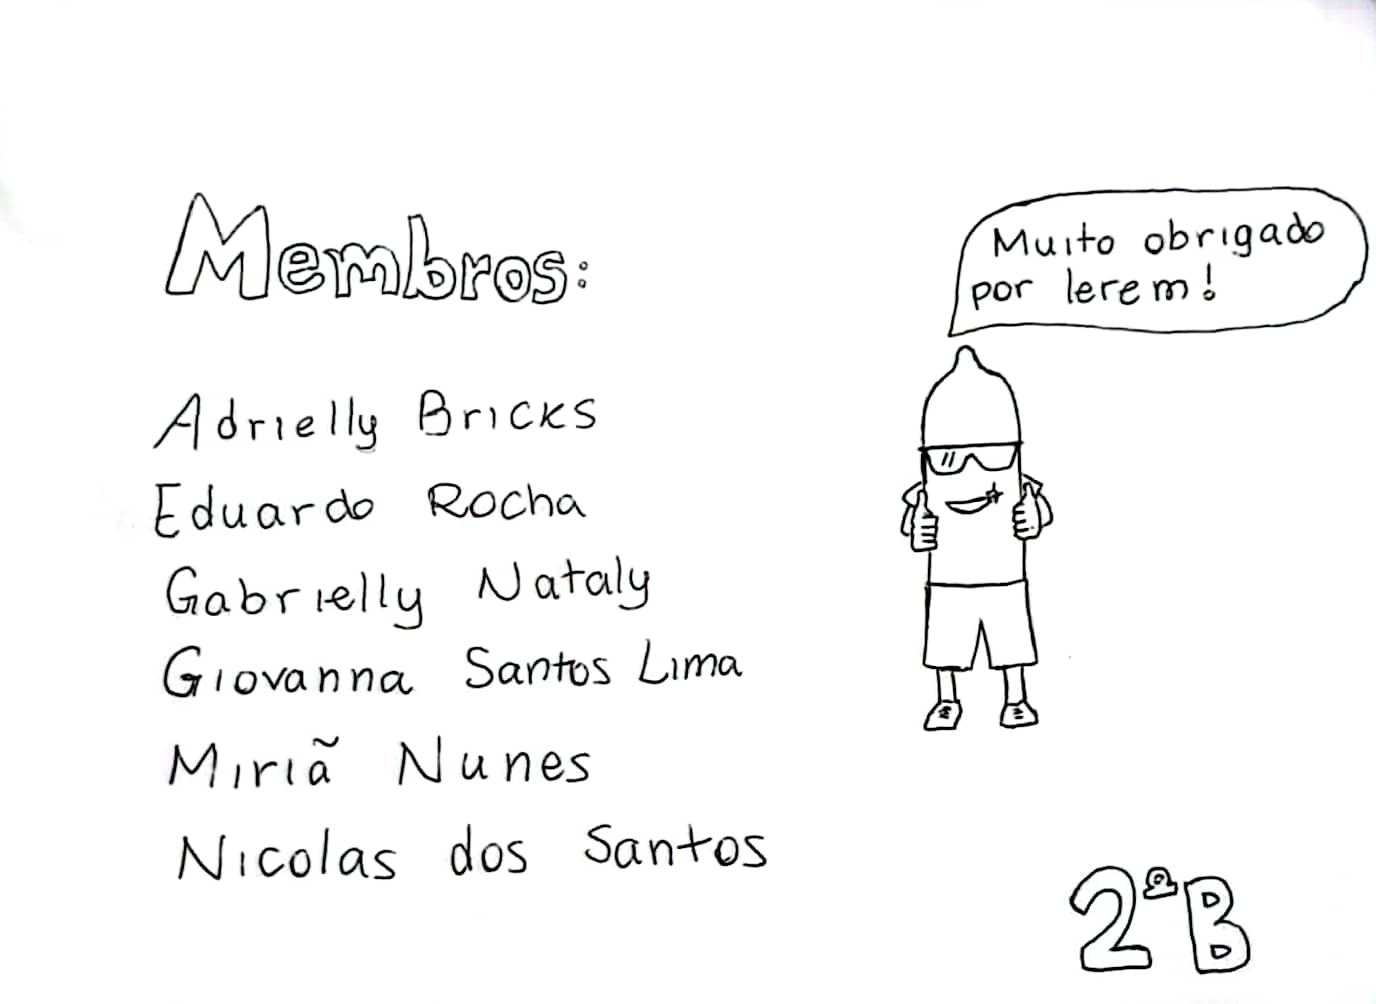 Membros:
Adrielly Bricks
Eduardo Rocha
Gabrielly Nataly
Giovanna Santos Lima
Miriã Nunes
Nicolas dos Santos
Muito obrigado
por lerem!
2º B